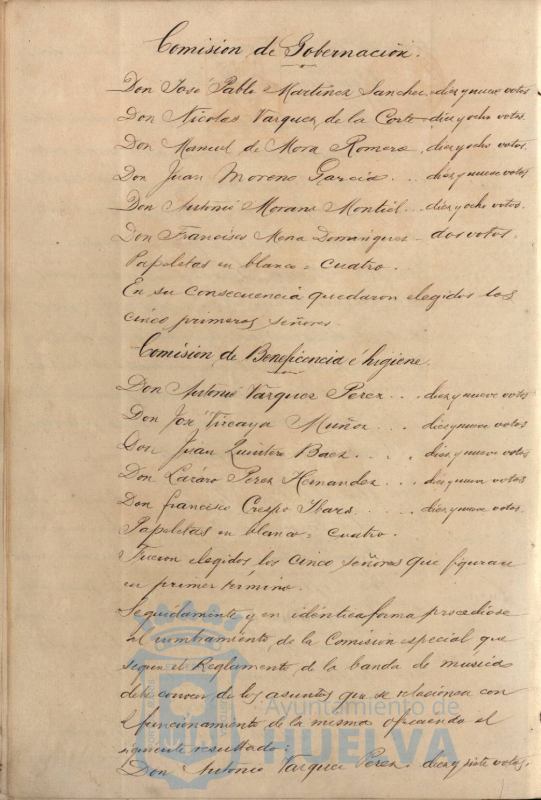 Comisión de Gobernación.
Don José Pablo Martinez Sanchez - diez y nueve votos
Don Nicolas Vazquez de la Corte - diez y ocho votos.
Don Manuel de Mora Romero . diez y ocho votos.
Don Juan Moreno Garcia . . . diez y nueve votos
Don Antonio Morano Montiel . . diez y ocho votos.
Don Francisco Mena Dominguez - dos votos.
Papeletas en blanco = cuatro.
En su consecuencia quedaron elegidos los
cinco primeros señores.
Comisión de Beneficencia é higiene.
Don Antonio Vazquez Perez . . . diez y nueve votos
Don José Vizcaya Muñoz . . . diez y nueve votos
Don Juan Quintero Baez . . . . diez y nueve votos
Don Lázaro Perez Hernandez . . diez y nueve votos
Don Francisco Crespo . . . diez y nueve votos.
Papeletas en blanco = cuatro.
Fueron elegidos los cinco señores que figuran
en primer término.
Seguidamente y en idéntica forma procediose
al nombramiento de la Comisión especial que
segun el Reglamento de la banda de musica
debe conocer de los asuntos que se relacionen con
el funcionamiento de la misma ofreciendo el
siguiente resultado:
Don Antonio Vazquez Perez . diez y siete votos.
Ayuntamiento de
HUELVA